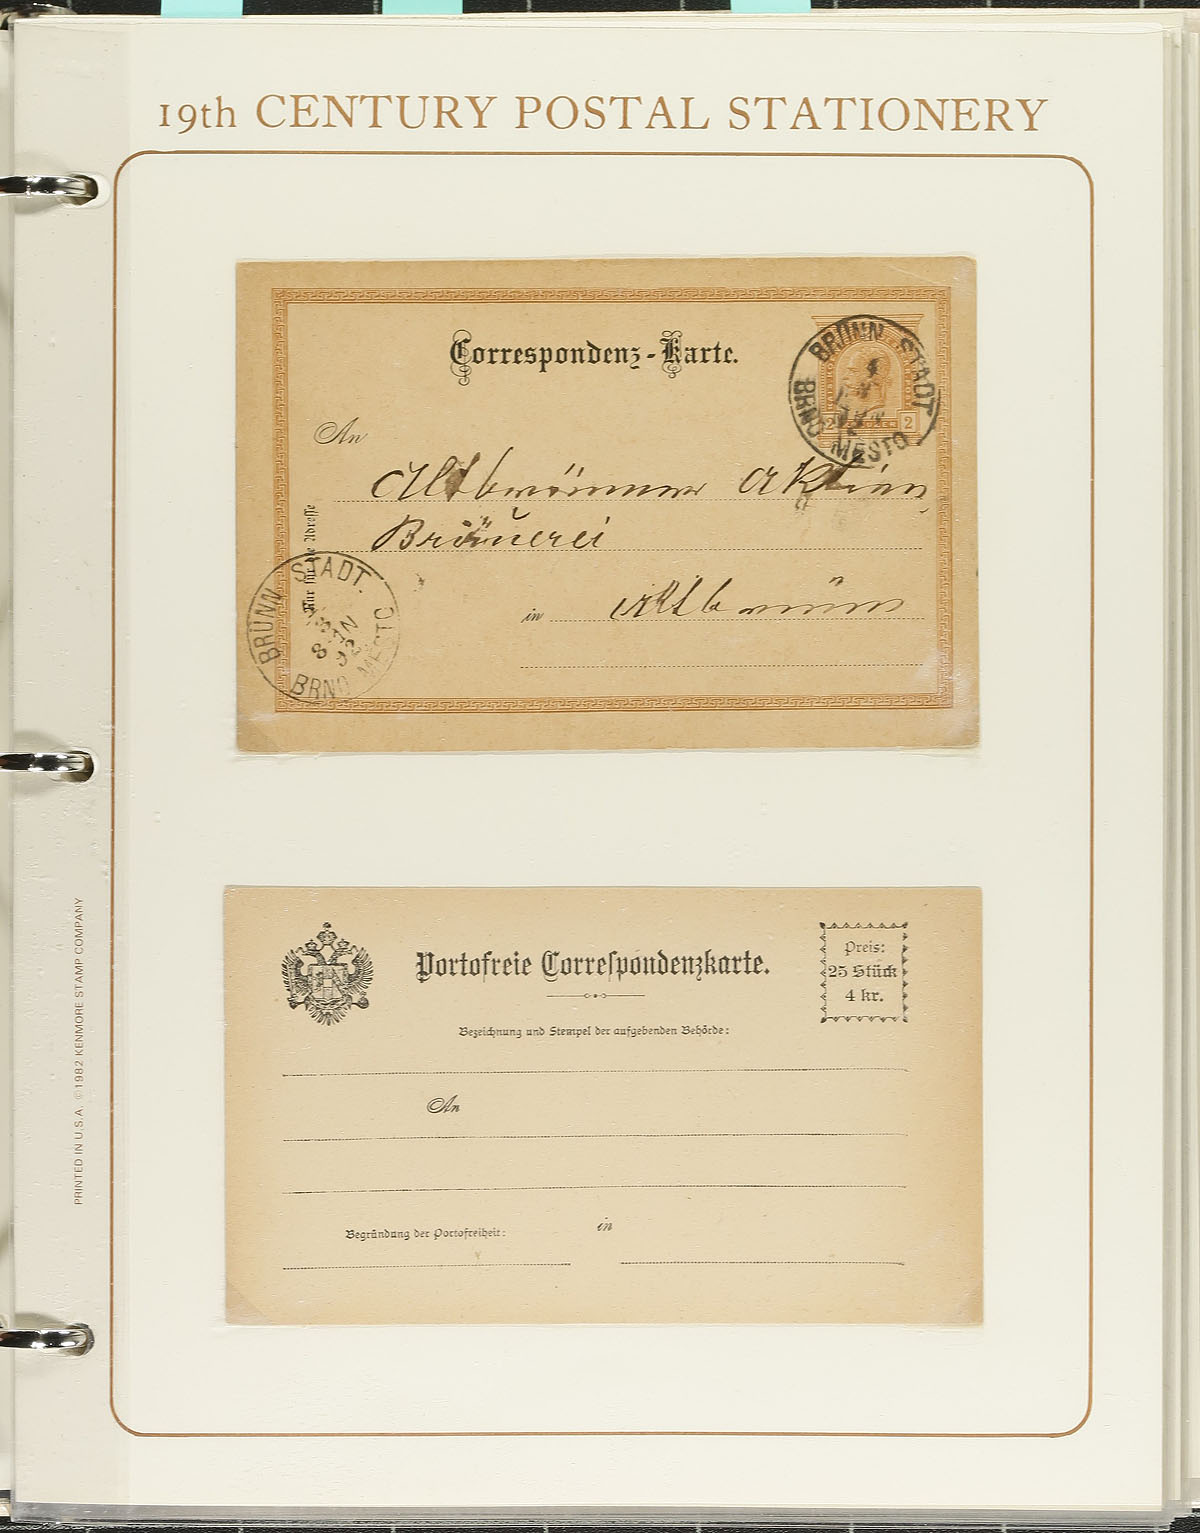 19th CENTURY POSTAL STATIONERY
Correspondenz-Karte.
BRÜNN STADT
BRNO MĚSTO
2 2
An
Altbrünner Aktien
Bräuerei
Nur für die Adresse
in Altbrünn
BRÜNN STADT.
8
92
BRNO MĚSTO
Portofreie Correſpondenzkarte.
Preis:
25 Stück
4 kr.
Bezeichnung und Stempel der aufgebenden Behörde:
An
in
Begründung der Portofreiheit:
PRINTED IN U.S.A. ©1982 KENMORE STAMP COMPANY